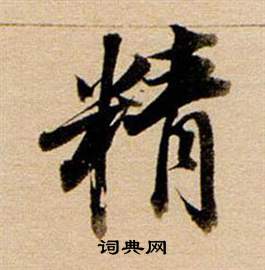 精
词典网